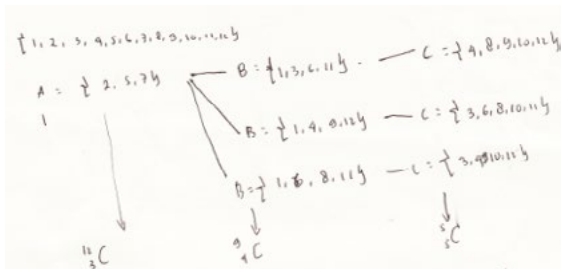 {1, 2, 3, 4, 5, 6, 7, 8, 9, 10, 11, 12}
A = { 2, 5, 7} B = {1, 3, 6, 11} C = {4, 8, 9, 10, 12}
1
B = { 1, 4, 9, 12} C = { 3, 6, 8, 10, 11}
B = { 1, 6, 8, 11} C = { 3, 10, 12}
12 3 C 9 4 C 5 5 C